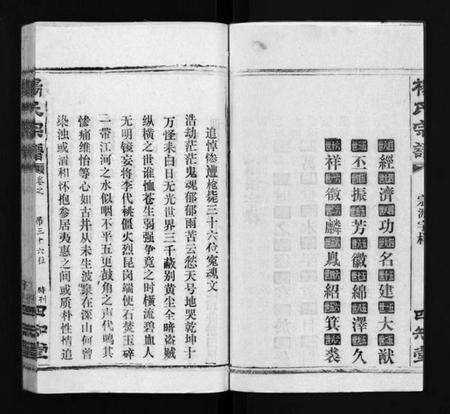 楊氏宗譜
經濟功名建大猷
丕振芳徽綿澤久
祥徵麟鳳紹箕裘
四知堂
追悼慘遭槍斃三十六位冤魂文
浩劫茫茫鬼魂郁郁雨苦云愁天号地哭乾坤十
万怪来白日无光世界三千藏别黄尘全暗盗贼
纵横之世谁恤苍生弱强争竞之时横流碧血人
无明镜妄将李代桃僵火烈昆岗端使石焚玉碎
一带江河之水似咽不平五更鼓角之声代鸣其
惨痛维怡等心如古井从未生波寨在深山何曾
染浊或涓和怀抱参居夷惠之间或质朴性情追
楊氏宗譜
卷之
第三十六位
四知堂